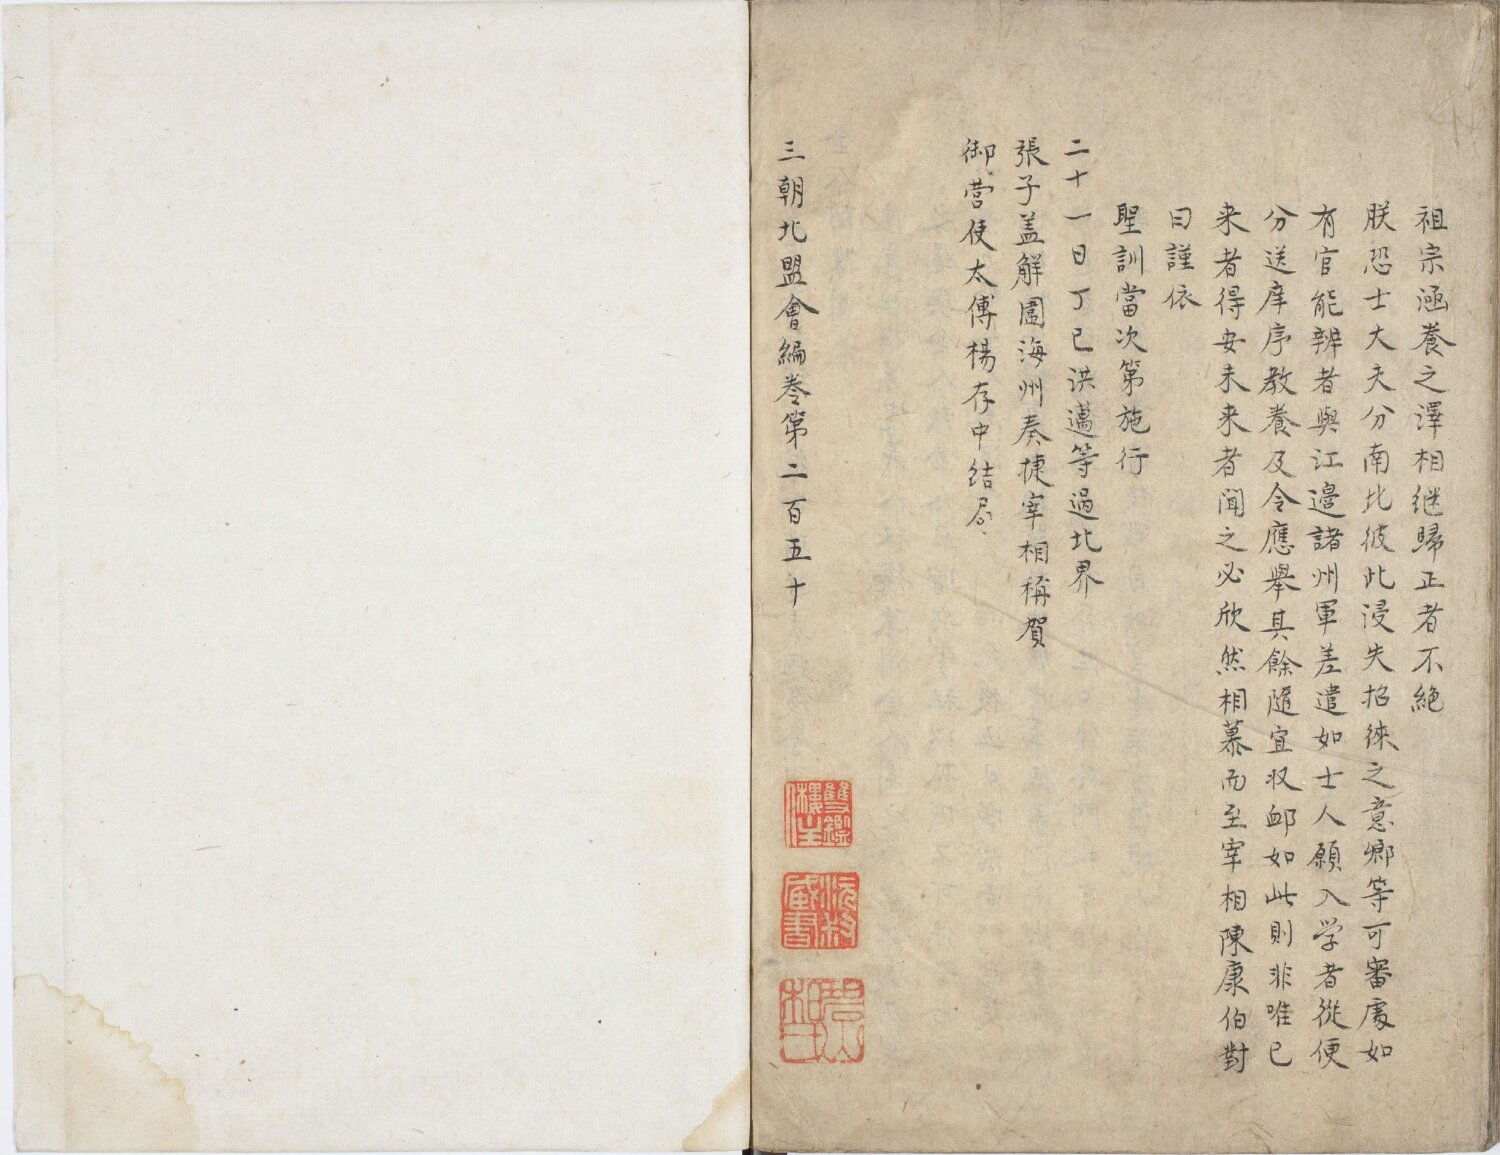 祖宗涵養之澤相継歸正者不絶
朕恐士大夫分南北彼此浸失招徠之意鄉等可審處如
有官能辨者與江邉諸州軍差遣如士人願入学者從便
分送庠序教養及令應舉其餘隨宜収䘏如此則非唯已
来者得安未来者聞之必欣然相慕而至宰相陳康伯對
曰謹依
聖訓當次第施行
二十一日丁巳洪邁等過北界
張子盖解圍海州奏捷宰相稱賀
御营使太傅楊存中结局
三朝北盟會編卷第二百五十
雙鑑樓主
沅叔藏書